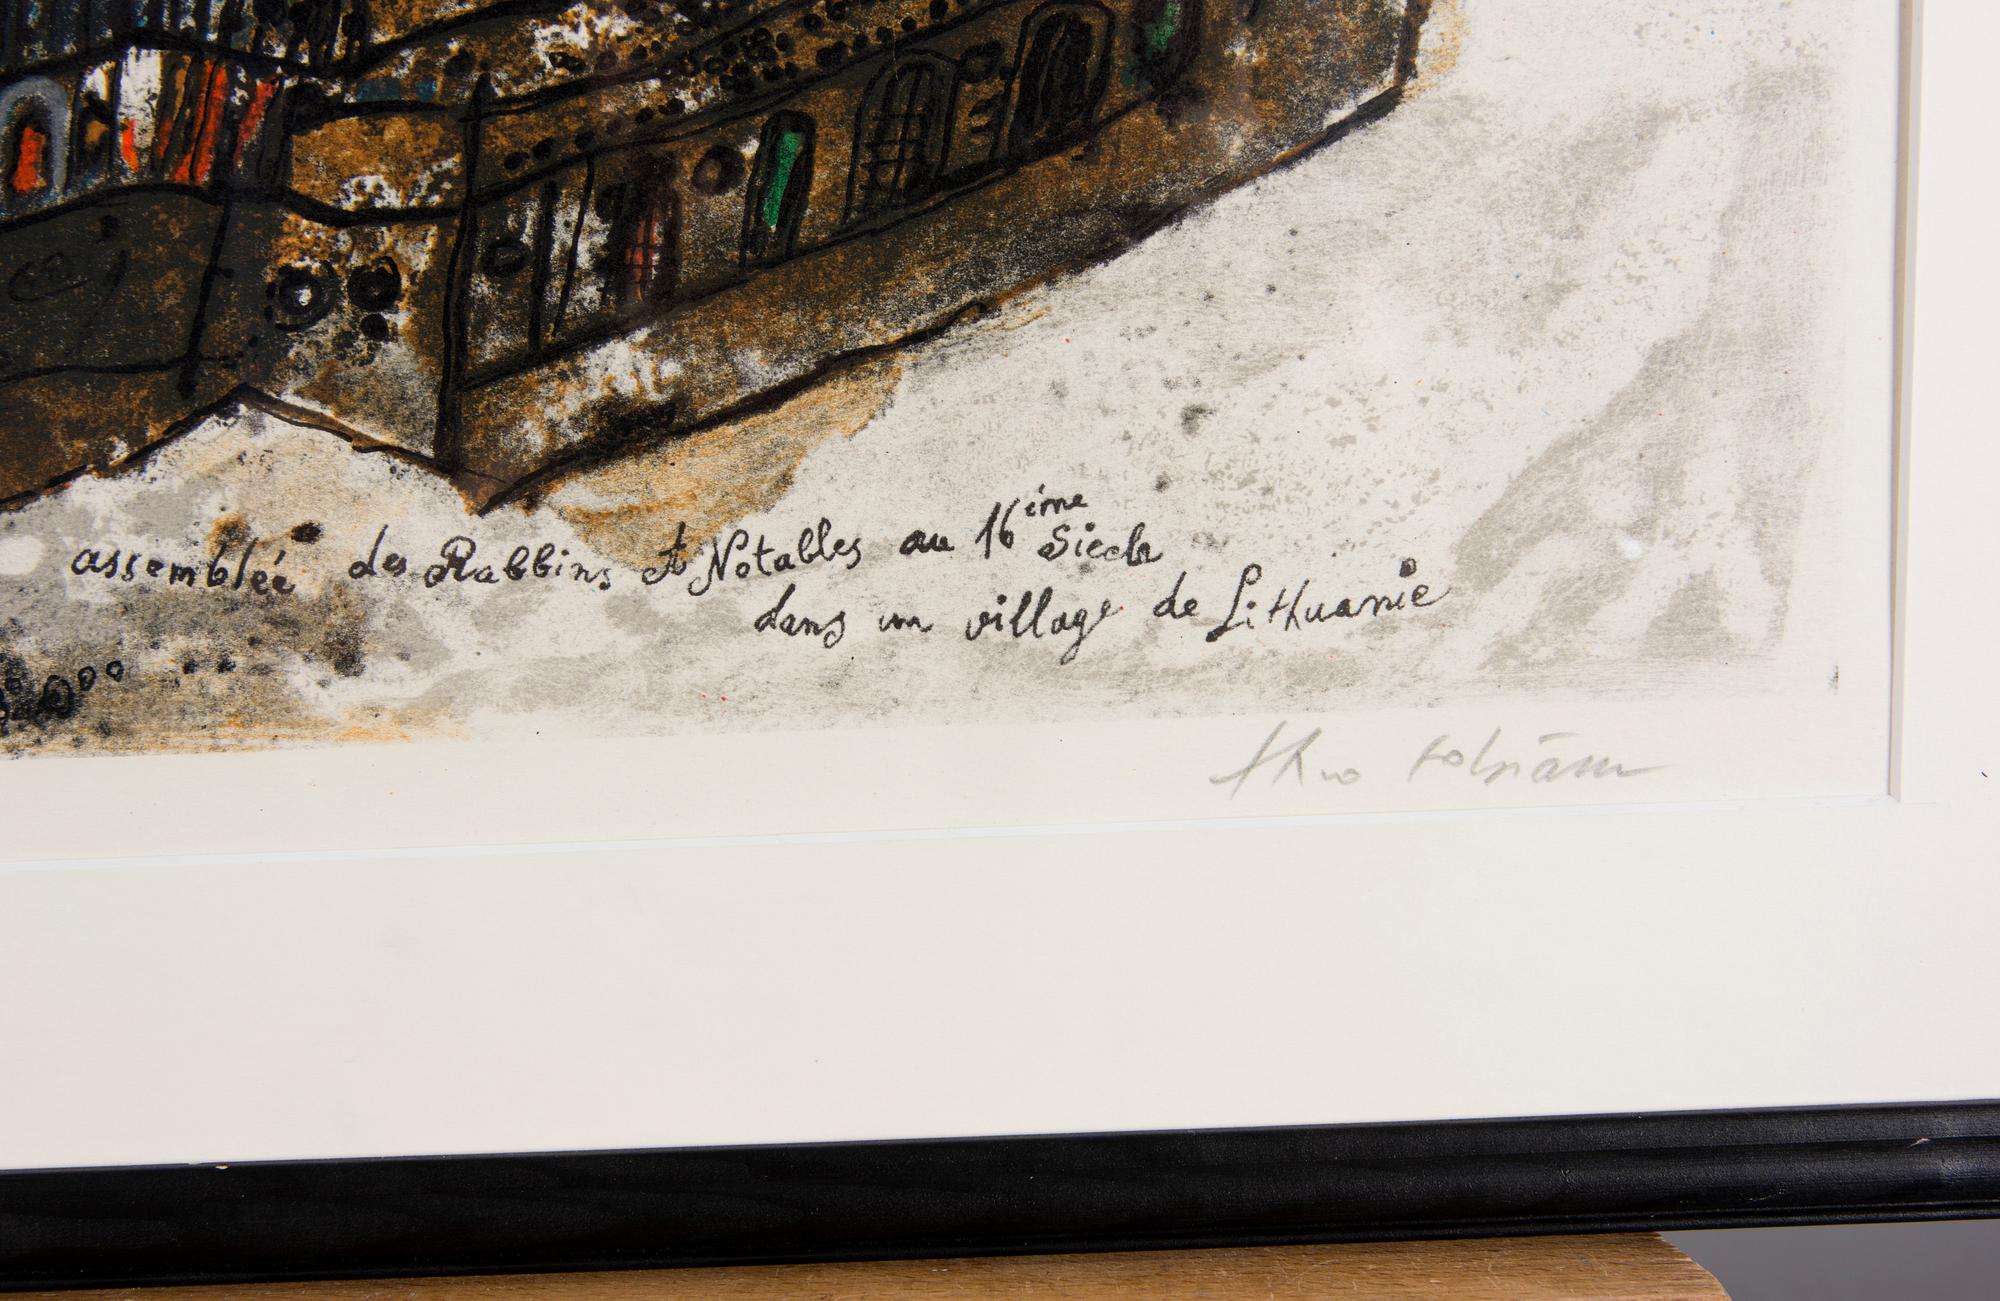 assemblée des Rabbins et Notables au 16ième Siècle
dans un village de Lithuanie
théo tobiasse